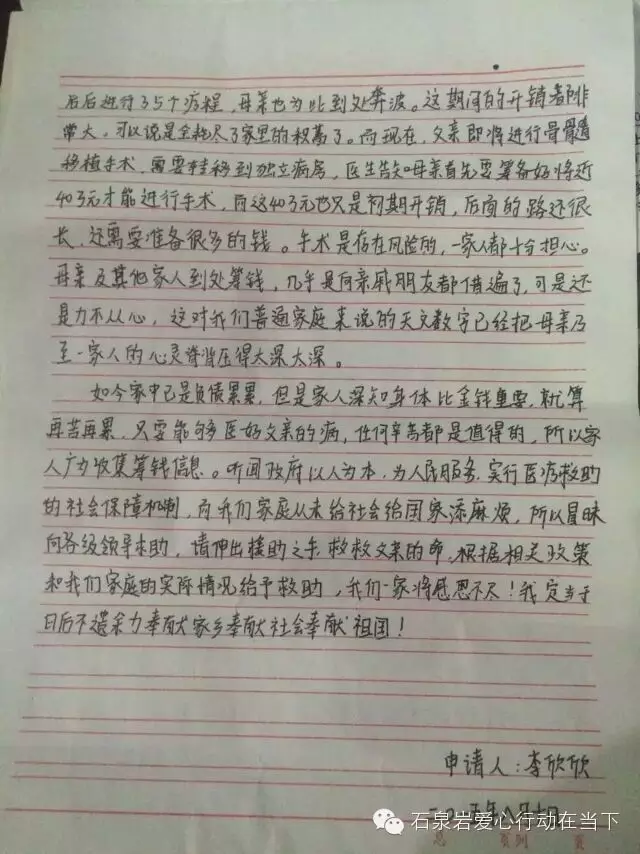 后后进行了35个疗程，母亲也为此到处奔波。这期间的开销都非
常大，可以说是全耗尽了家里的积蓄了。而现在，父亲即将进行骨髓
移植手术，需要转移到独立病房，医生告知母亲首先要筹备好将近
40万元才能进行手术，而这40万元也只是初期开销，后面的路还很
长，还需要准备很多的钱。手术是存在风险的，一家人都十分担心。
母亲及其他家人到处筹钱，几乎是向亲戚朋友都借遍了，可是还
是力不从心，这对我们普通家庭来说的天文数字已经把母亲乃
至一家人的心灵脊背压得太深太深。
如今家中已是负债累累，但是家人深知身体比金钱重要，就算
再苦再累，只要能够医好父亲的病，任何辛苦都是值得的，所以家
人广为收集筹钱信息。听闻政府以人为本，为人民服务，实行医疗救助
的社会保障机制，而我们家庭从未给社会给国家添麻烦，所以冒昧
向各级领导求助，请伸出援助之手，救救父亲的命，根据相关政策
和我们家庭的实际情况给予救助，我们一家将感恩不尽！我定当于
日后不遗余力奉献家乡奉献社会奉献祖国！
申请人：李欣欣
二〇一五年八月十日
石泉岩爱心行动在当下
页